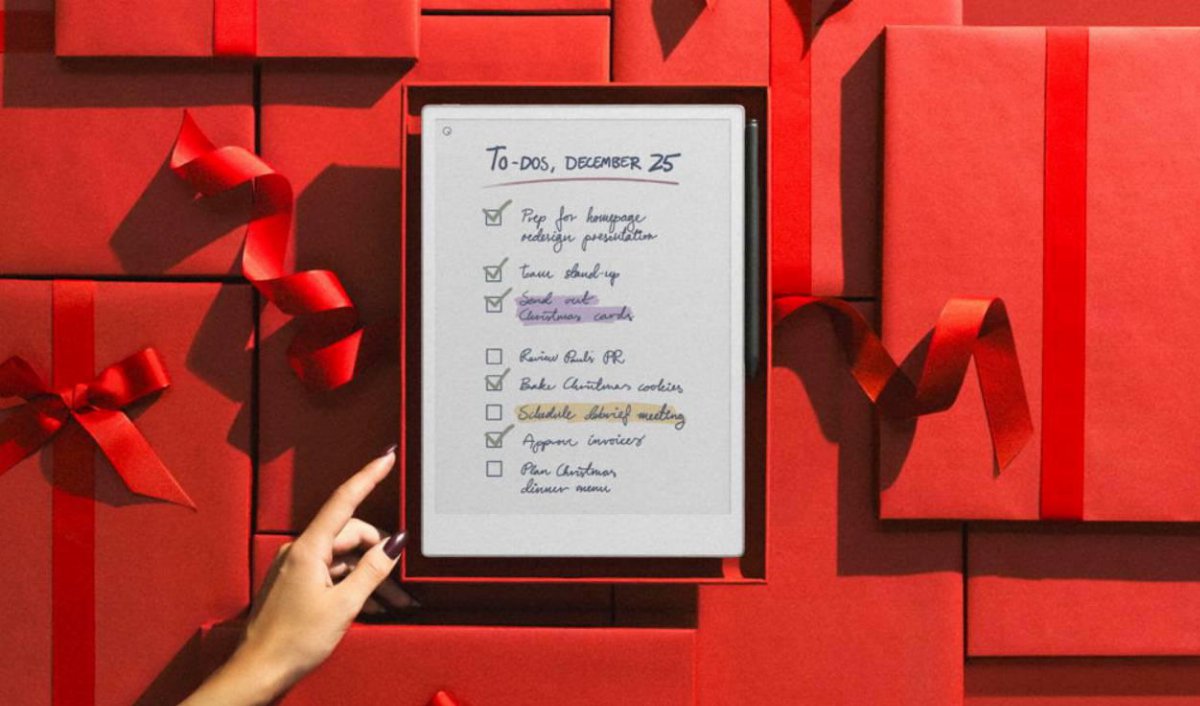 To-dos, December 25
Prep for homepage
redesign presentation
Team stand-up
Send out
Christmas cards
Review Paul's PR
Bake Christmas cookies
Schedule debrief meeting
Approve invoices
Plan Christmas
dinner menu